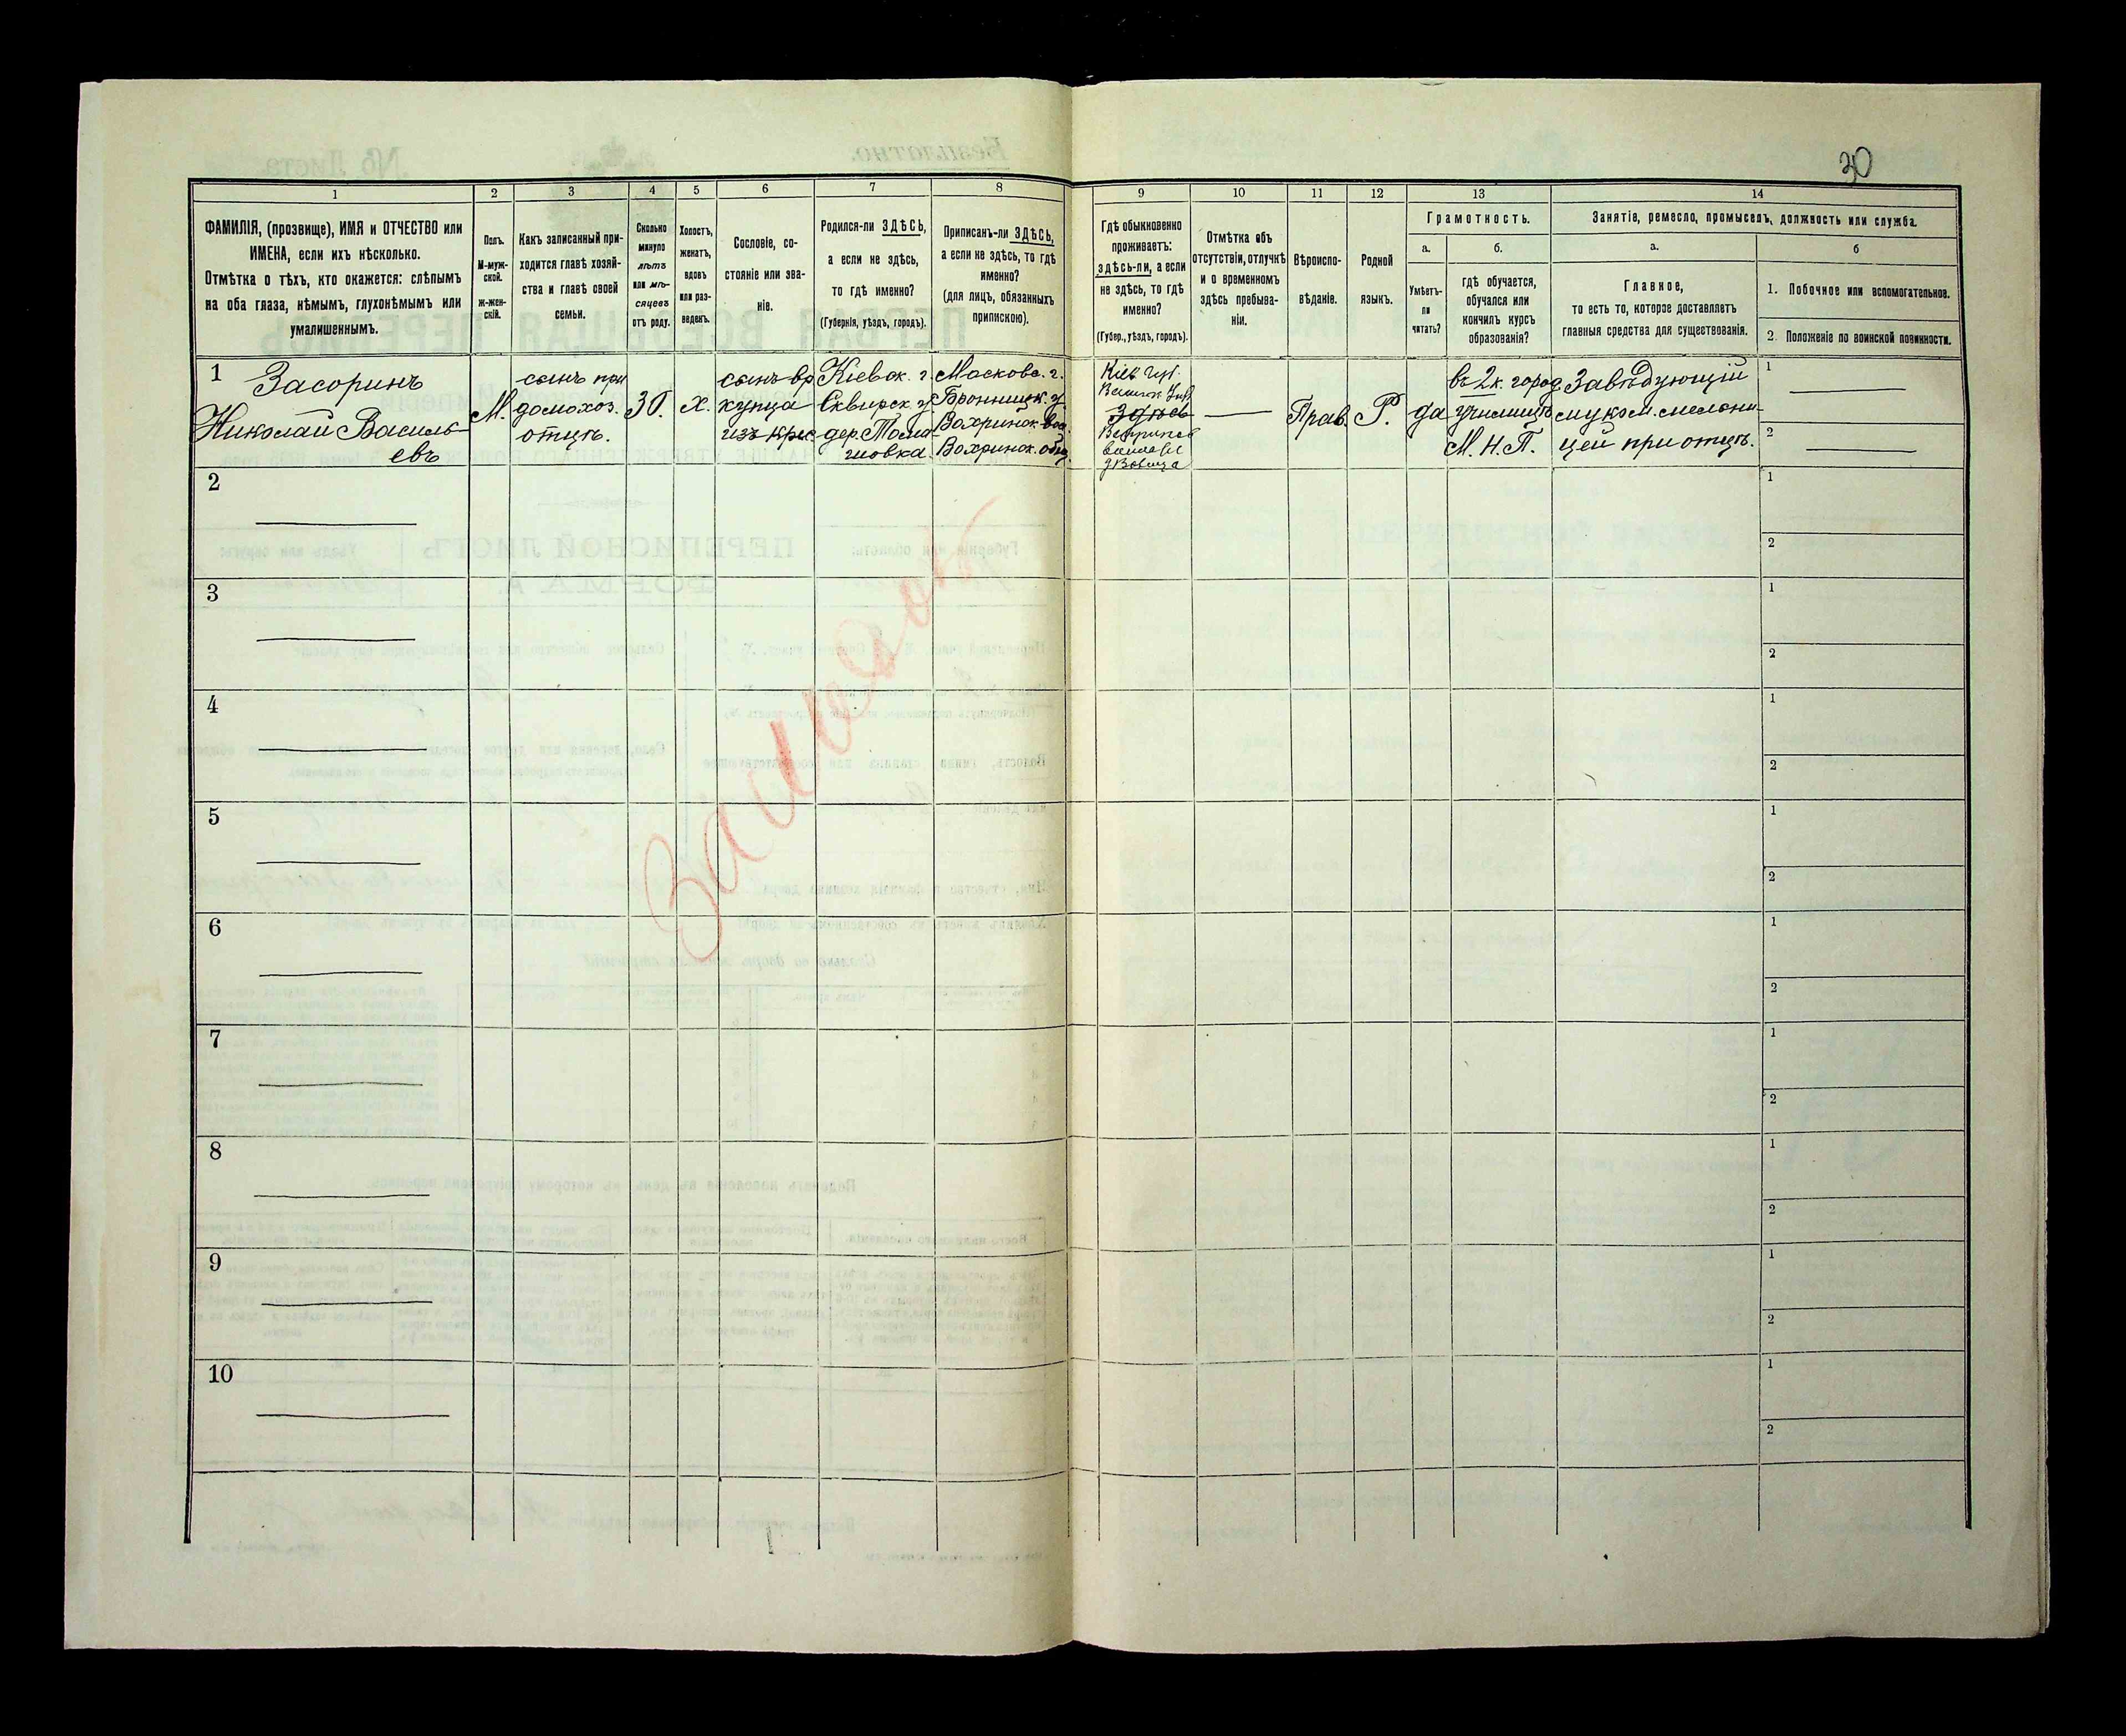 30
1
2
3
4
5
6
7
8
9
10
11
12
13
14
ФАМИЛІЯ, (прозвище), ИМЯ и ОТЧЕСТВО или
ИМЕНА, если ихъ нѣсколько.
Отмѣтка о тѣхъ, кто окажется: слѣпымъ
на оба глаза, нѣмымъ, глухонѣмымъ или
умалишеннымъ.
Полъ.
М-муж-
ской.
ж-жен-
скій.
Какъ записанный при-
ходится главѣ хозяй-
ства и главѣ своей
семьи.
Сколько
минуло
лѣтъ
или мѣ-
сяцевъ
отъ роду.
Холостъ,
женатъ,
вдовъ
или раз-
веденъ.
Сословіе, со-
стояніе или зва-
ніе.
Родился-ли ЗДѢСЬ,
а если не здѣсь,
то гдѣ именно?
(Губернія, уѣздъ, городъ).
Приписанъ-ли ЗДѢСЬ,
а если не здѣсь, то гдѣ
именно?
(для лицъ, обязанныхъ
припискою).
Гдѣ обыкновенно
проживаетъ:
здѣсь-ли, а если
не здѣсь, то гдѣ
именно?
(Губер., уѣздъ, городъ).
Отмѣтка объ
отсутствіи, отлучкѣ
и о временномъ
здѣсь пребыва-
ніи.
Вѣроиспо-
вѣданіе.
Родной
языкъ.
Грамотность.
а.
Умѣетъ-
ли
читать?
б.
гдѣ обучается,
обучался или
кончилъ курсъ
образованія?
Занятіе, ремесло, промыселъ, должность или служба.
а.
Главное,
то есть то, которое доставляетъ
главныя средства для существованія.
б
1. Побочное или вспомогательное.
2. Положеніе по воинской повинности.
1
Засоринъ
Николай Василь-
евъ
М.
сынъ при
домохоз.
отцѣ.
30.
Х.
сынъ вр
купца
изъ крес
Кіевск. г.
Сквирск. у.
дер.
Московс. г.
Бронницк. у.
Вохринск. вол.
Вохринск. общ.
Кіев губ.
Здѣсь
Прав.
Р.
да
въ 2 к. город
училищѣ
М. Н. П.
Завѣдующій
мукомельни-
цей при отцѣ.
1
2
2
1
2
3
1
2
4
1
2
5
1
2
6
1
2
7
1
2
8
1
2
9
1
2
10
1
2